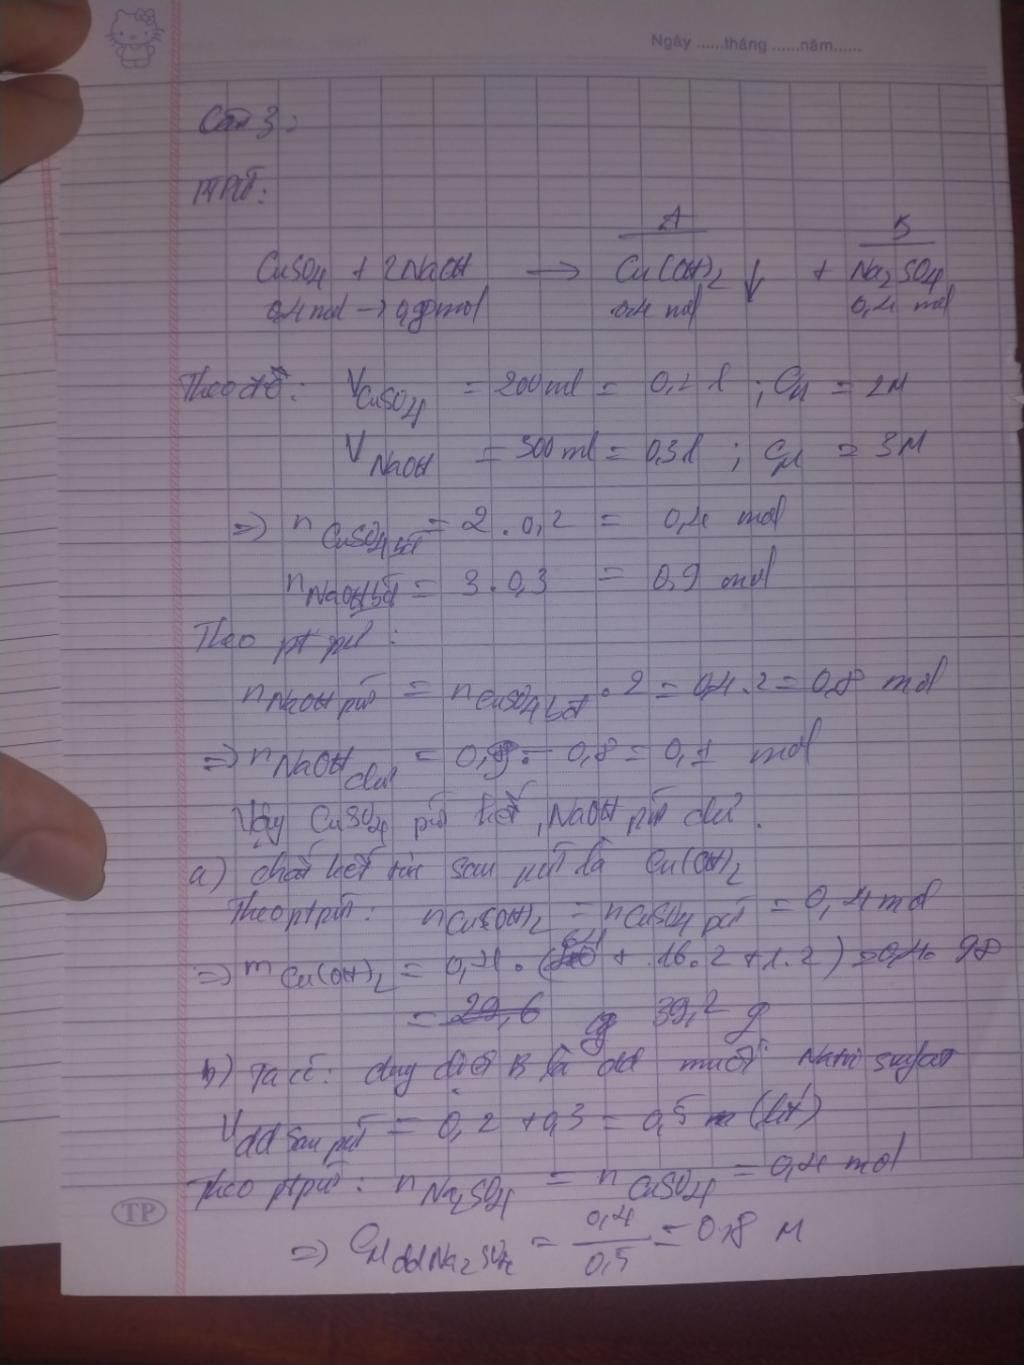 Ngày ......tháng ......năm......
Câu 3:
PTPƯ:
A B
CuSO4 + 2NaOH → Cu(OH)2 ↓ + Na2SO4
0,4 mol → 0,8 mol 0,4 mol 0,4 mol
Theo đề: VCuSO4 = 200ml = 0,2 l ; CM = 2M
VNaOH = 300ml = 0,3l ; CM = 3M
=> nCuSO4 bđ = 2 . 0,2 = 0,4 mol
nNaOH bđ = 3 . 0,3 = 0,9 mol
Theo pt pư:
nNaOH pư = nCuSO4 bđ . 2 = 0,4 . 2 = 0,8 mol
=> nNaOH dư = 0,9 - 0,8 = 0,1 mol
Vậy CuSO4 pư hết, NaOH pư dư.
a) chất kết tủa sau pư là Cu(OH)2
Theo ptpư: nCu(OH)2 = nCuSO4 pư = 0,4 mol
=> mCu(OH)2 = 0,4 . (64 + 16.2 + 1.2) = 0,4 . 98
= 29,6 39,2 g
b) Ta có: dung dịch B là dd muối Natri sunfat
Vdd sau pư = 0,2 + 0,3 = 0,5 (lít)
Theo ptpư: nNa2SO4 = nCuSO4 = 0,4 mol
=> CM dd Na2SO4 = 0,4/0,5 = 0,8 M
TP